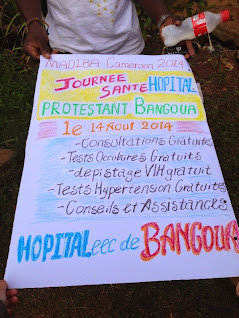 MADIBA Cameroon 2014
JOURNEE SANTE HOPITAL
PROTESTANT BANGOUA
le 14 Aout 2014
- Consultations Gratuites
- Tests Occulaires Gratuits
- depistage VIH gratuit
- Tests Hypertension Gratuites
- Conseils et Assistances
HOPITAL eec de BANGOUA